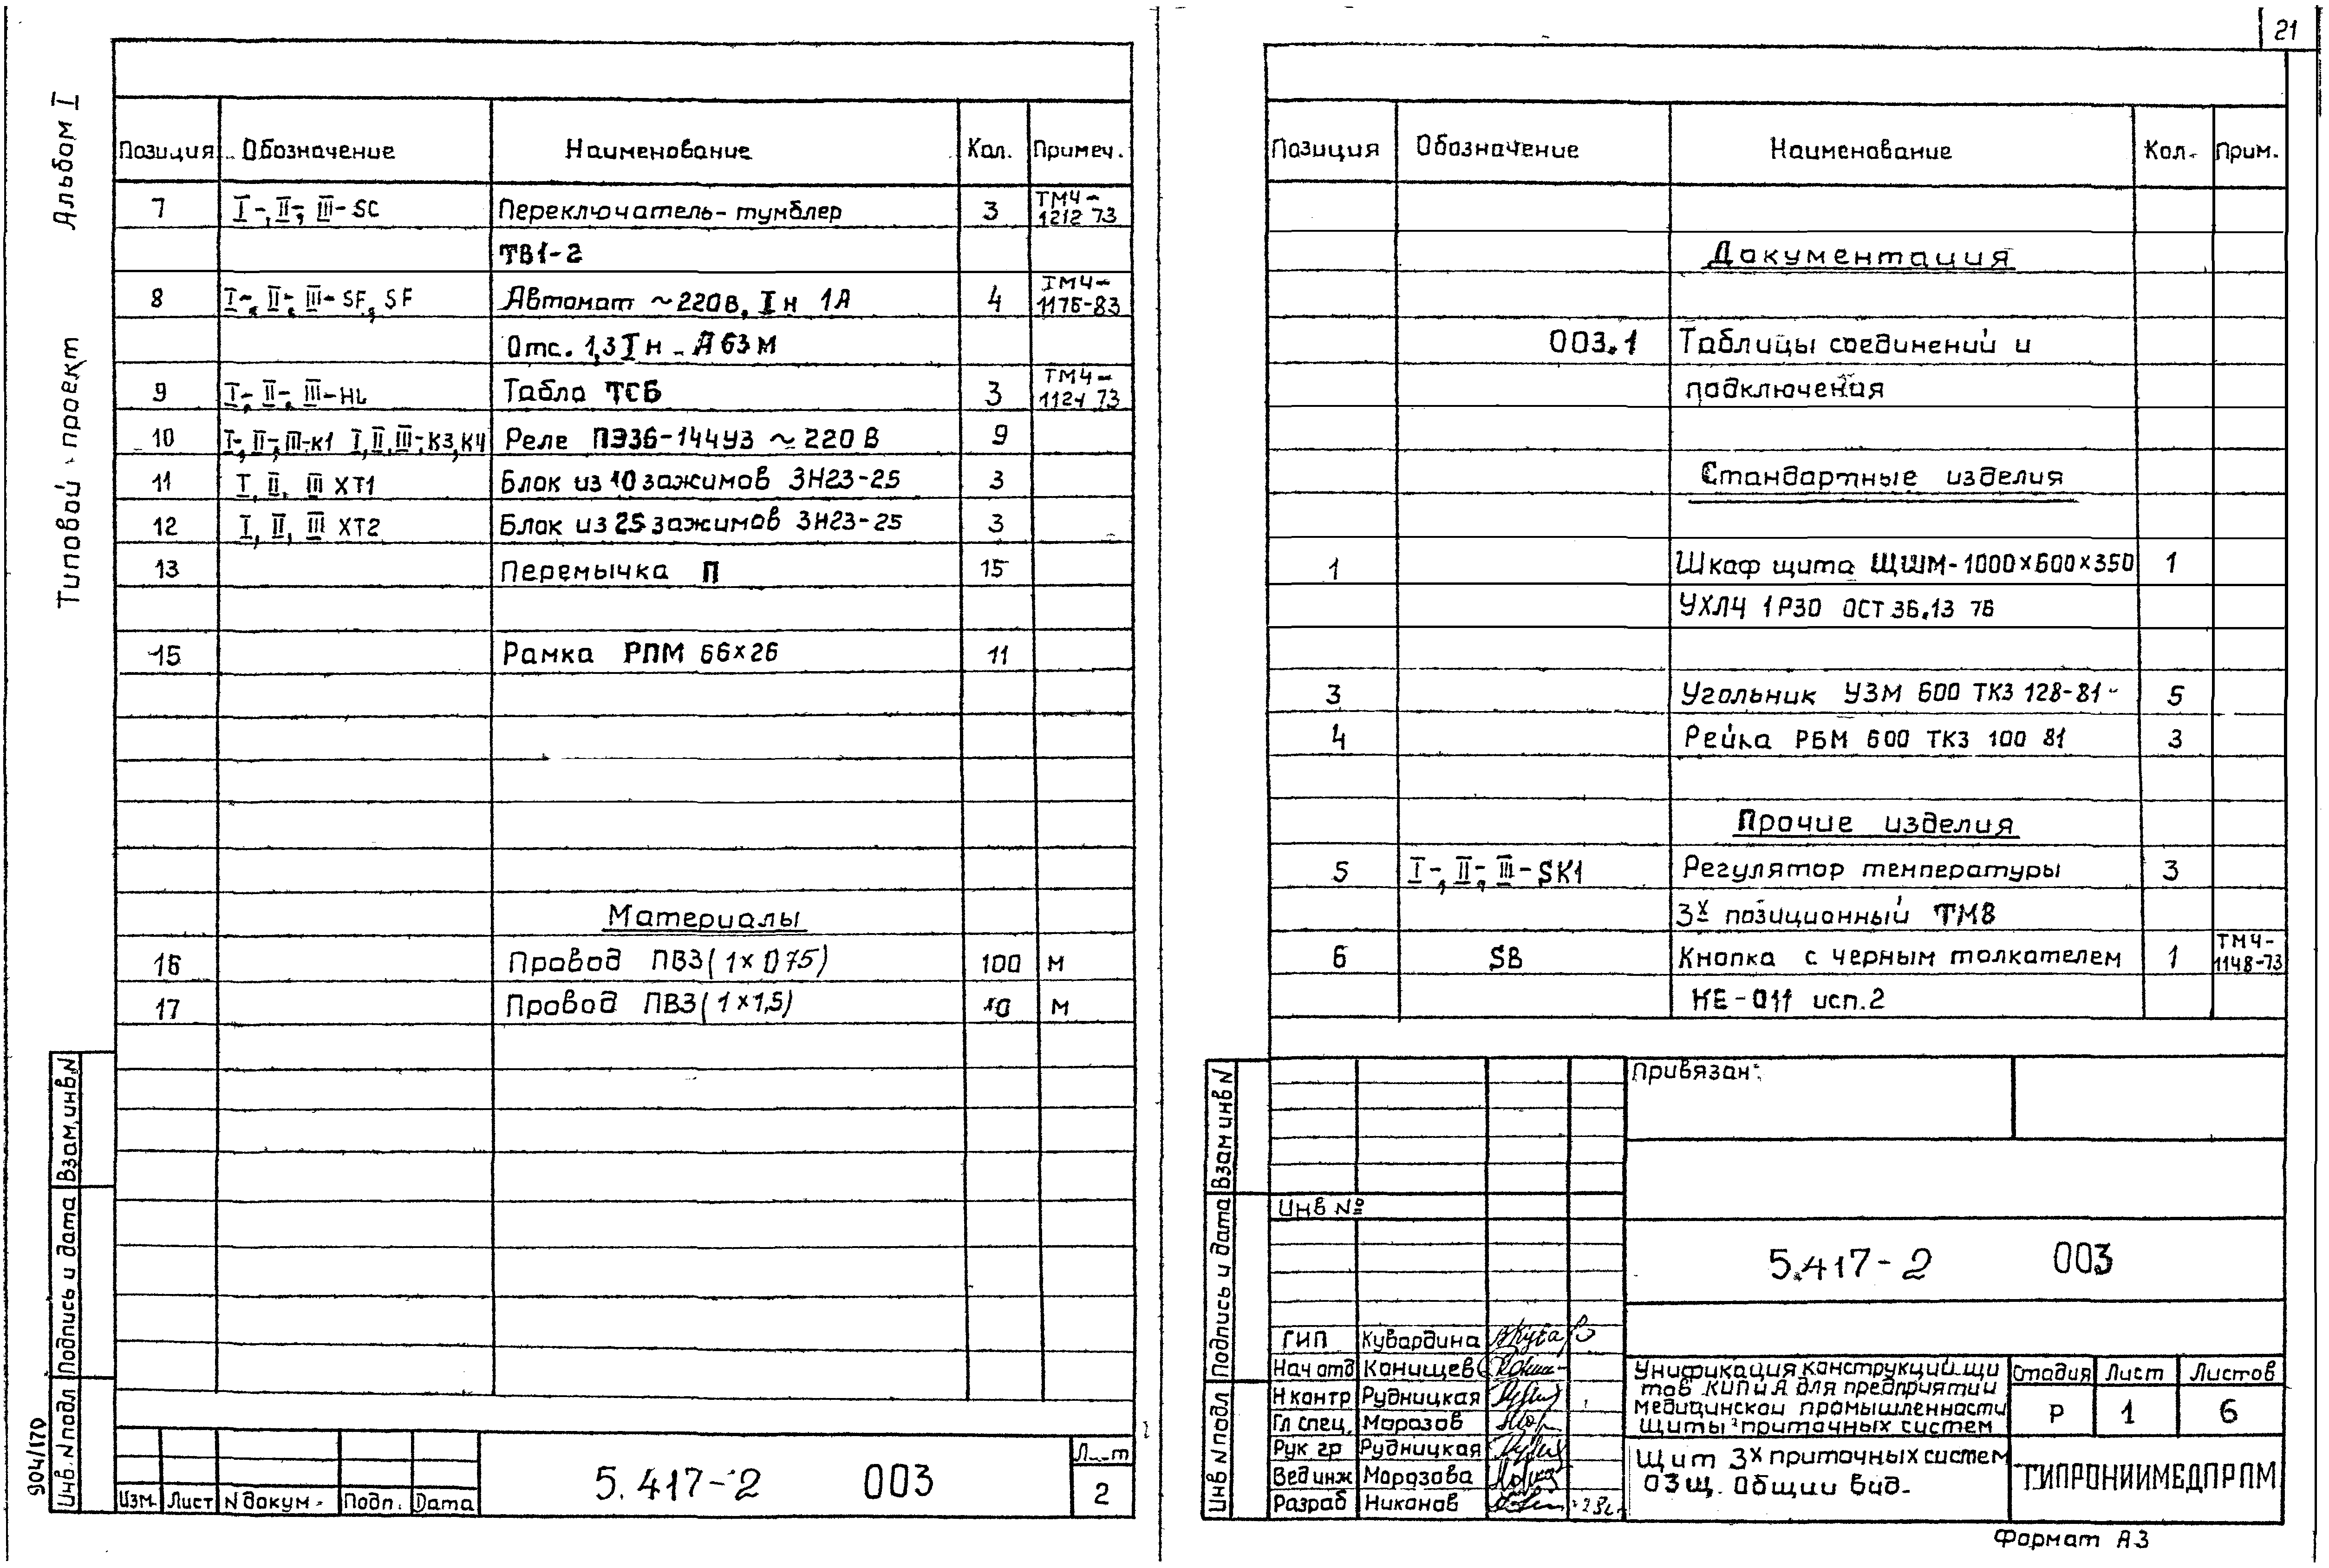 21
Типовой проект Альбом I
Позиция Обозначение Наименование Кол. Примеч.
7 I-, II-, III-SC Переключатель-тумблер 3 ТМ4-1212 73
ТВ1-2
8 I-, II-, III-SF, SF Автомат ~220В, Iн 1А 4 ТМ4-1176-83
Отс. 1,3 Iн - А63М
9 I-, II-, III-HL Табло ТСБ 3 ТМ4-1124 73
10 I-, II-, III-К1 I, II, III-К3,К4 Реле ПЭ36-144У3 ~220В 9
11 I, II, III XT1 Блок из 10 зажимов ЗН23-25 3
12 I, II, III XT2 Блок из 25 зажимов ЗН23-25 3
13 Перемычка П 15
15 Рамка РПМ 66×26 11
Материалы
16 Провод ПВ3(1×0,75) 100 м
17 Провод ПВ3(1×1,5) 10 м
Инв. N подл Подпись и дата Взам, инв. N
904/170
Изм. Лист N докум. Подп. Дата
5.417-2 003
Лист
2
Позиция Обозначение Наименование Кол. Прим.
Документация
003.1 Таблицы соединений и
подключения
Стандартные изделия
1 Шкаф щита ЩШМ-1000×600×350 1
УХЛ4 1Р30 ОСТ 36.13 76
3 Угольник УЗМ 600 ТК3 128-81 5
4 Рейка РБМ 600 ТК3 100 81 3
Прочие изделия
5 I-, II-, III-SK1 Регулятор температуры 3
3х позиционный ТМ8
6 SB Кнопка с черным толкателем 1 ТМ4-1148-73
КЕ-011 исп.2
Инв N подл Подпись и дата Взам инв N
Привязан:
Инв №
5.417-2 003
ГИП Кубардина
Нач отд Канищев
Н контр Рудницкая
Гл спец. Морозов
Рук гр Рудницкая
Вед инж Морозова
Разраб Никонов
Унификация конструкций щи
тов КИПиА для предприятий
медицинской промышленности
Щиты приточных систем
Стадия Лист Листов
Р 1 6
Щит 3х приточных систем
03щ. Общий вид.
ГИПРОНИИМЕДПРОМ
Формат А3